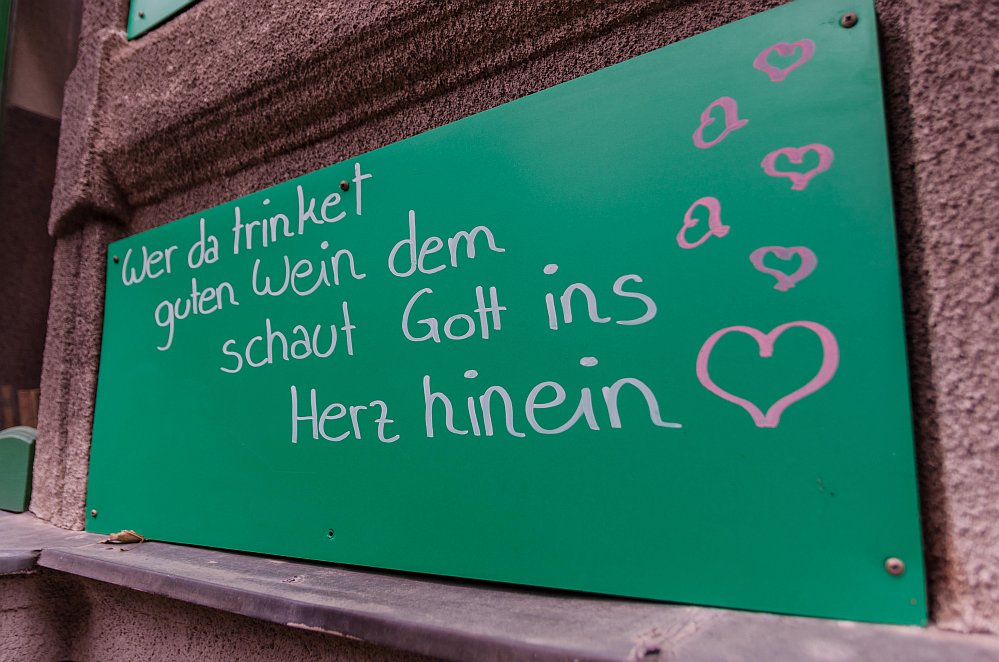 Wer da trinket
guten Wein dem
schaut Gott ins
Herz hinein